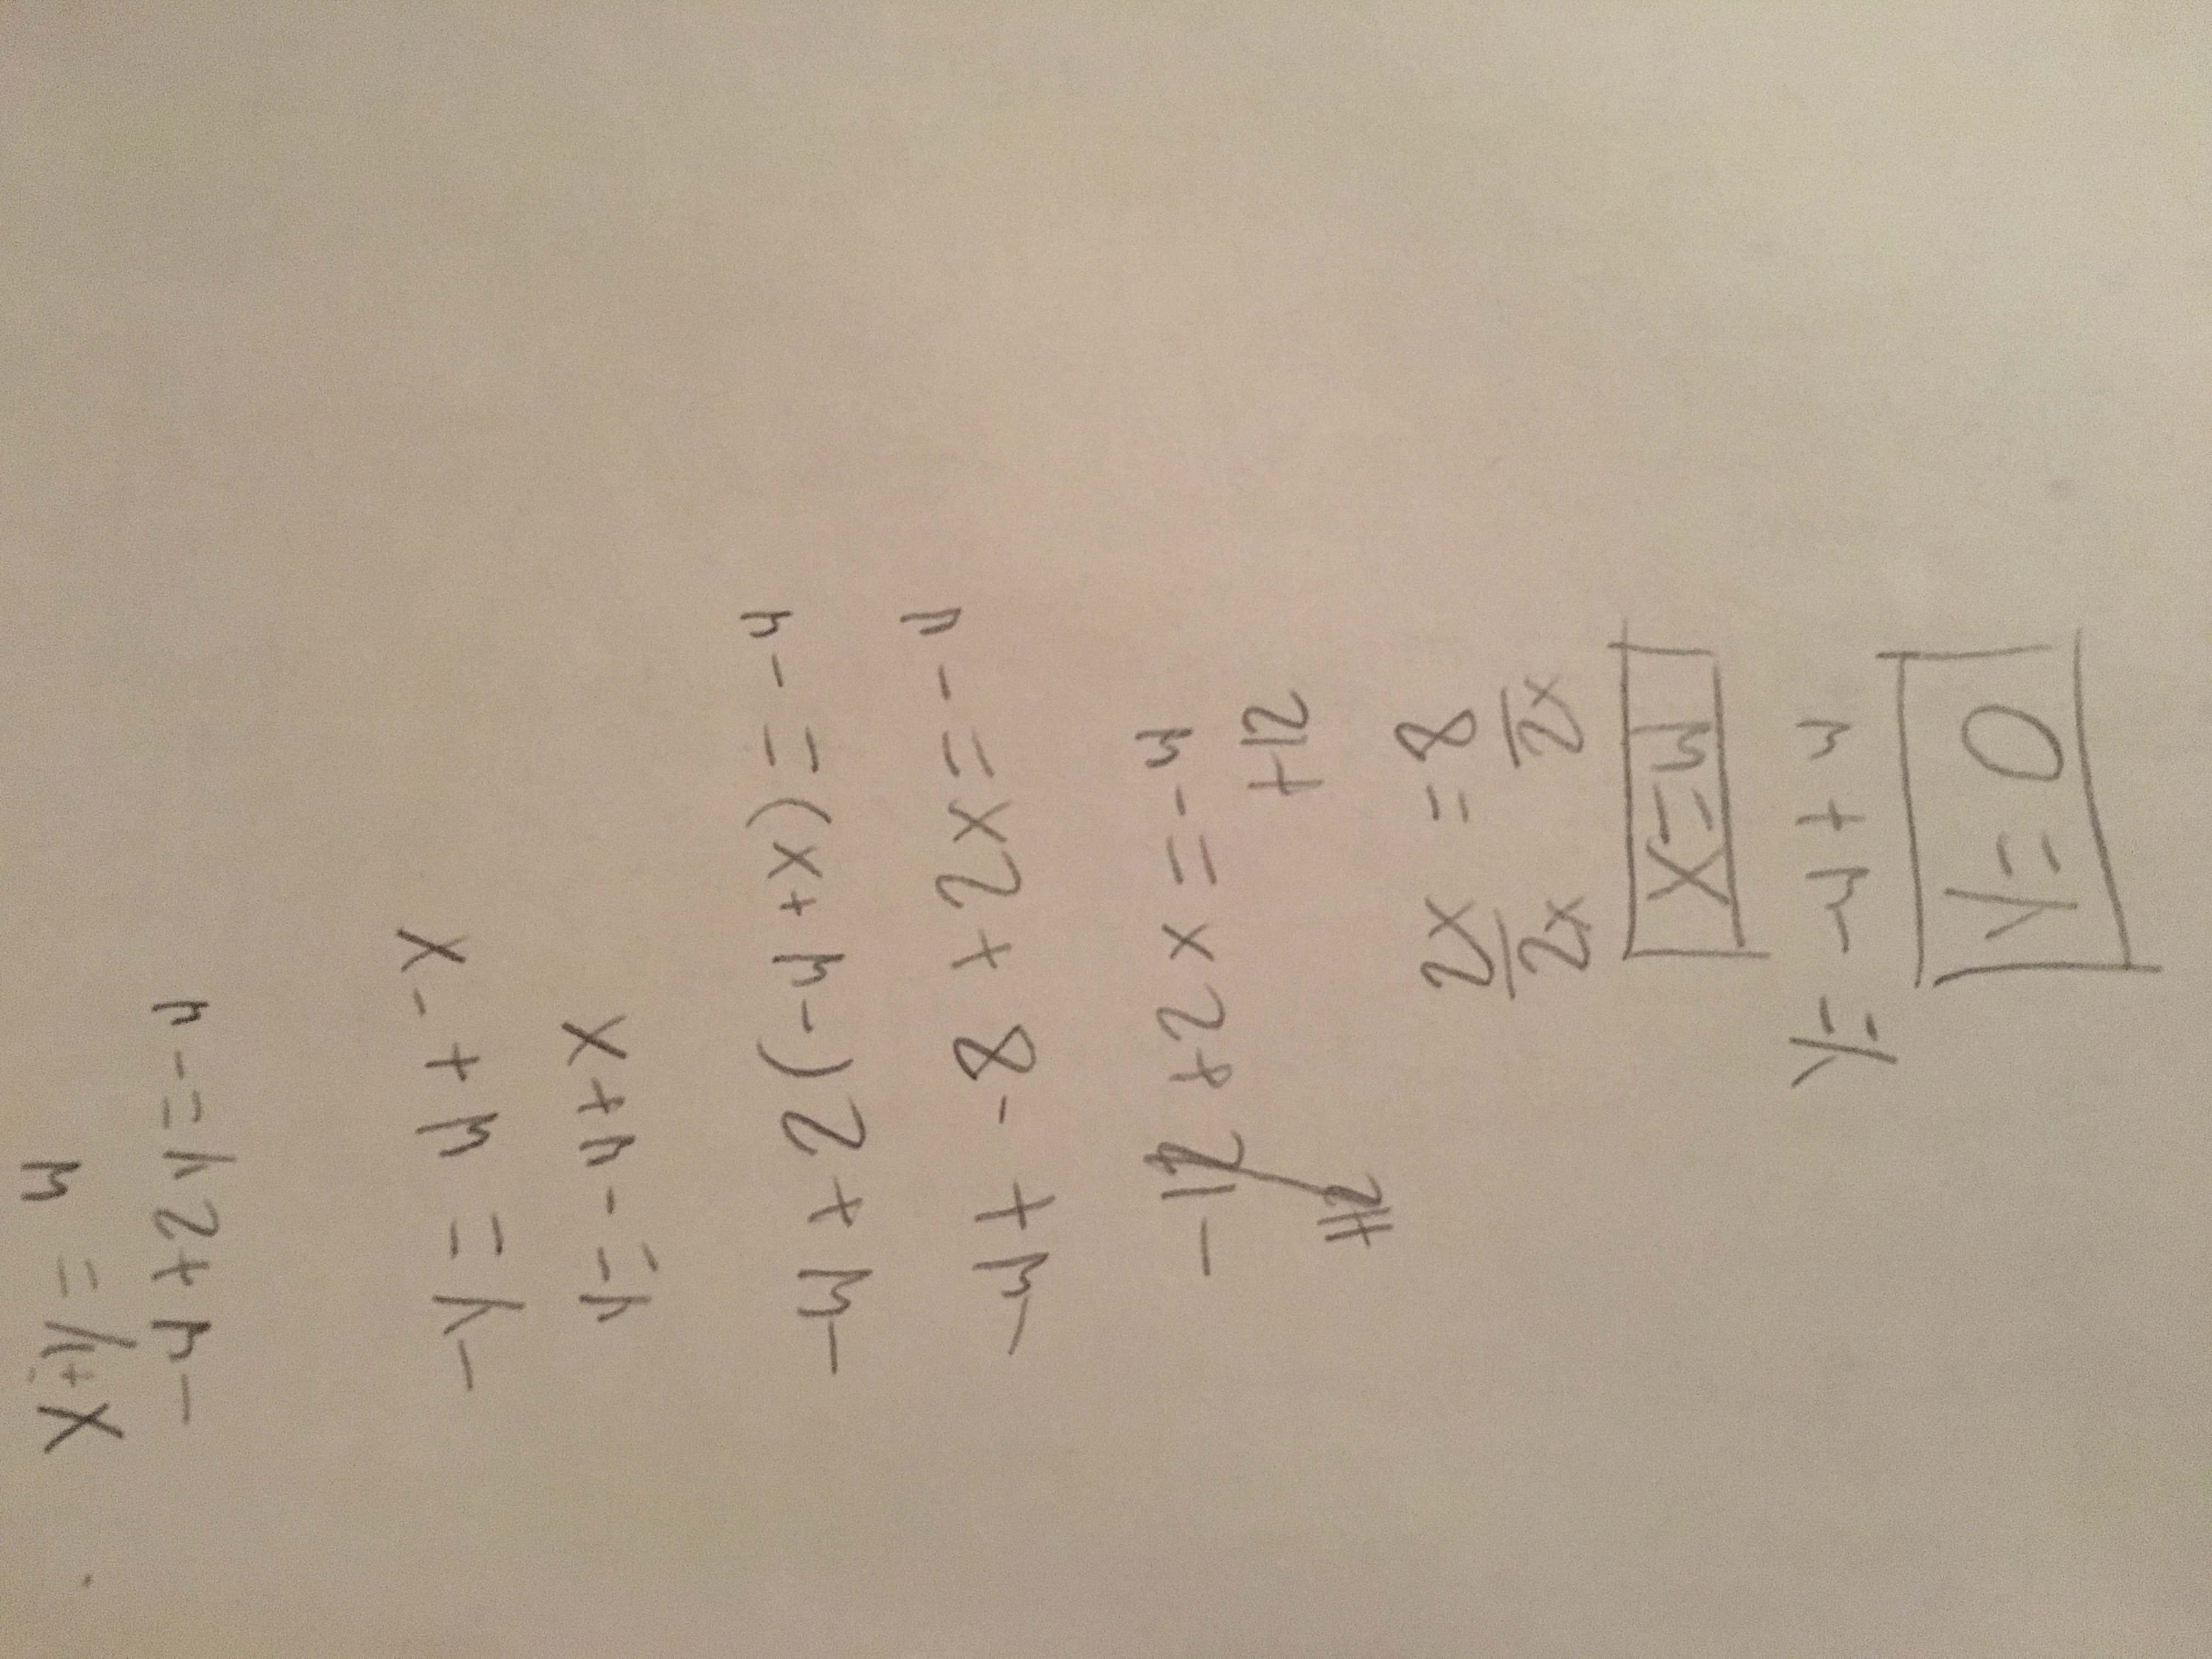 x + y = 4
-4 + 2y = -4
-y = 4 + -x
y = -4 + x
-4 + 2(-4 + x) = -4
-4 + -8 + 2x = -4
-12 + 2x = -4
+12 +12
2x = 8
2x 2x
x = 4
y = -4 + 4
y = 0